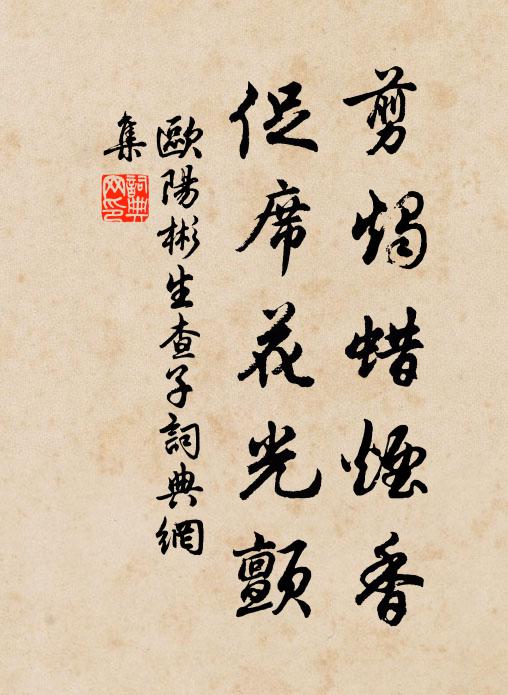 剪燭蜡煙香
促席花光顫
歐陽彬生查子詞典網
集
詞典
网印